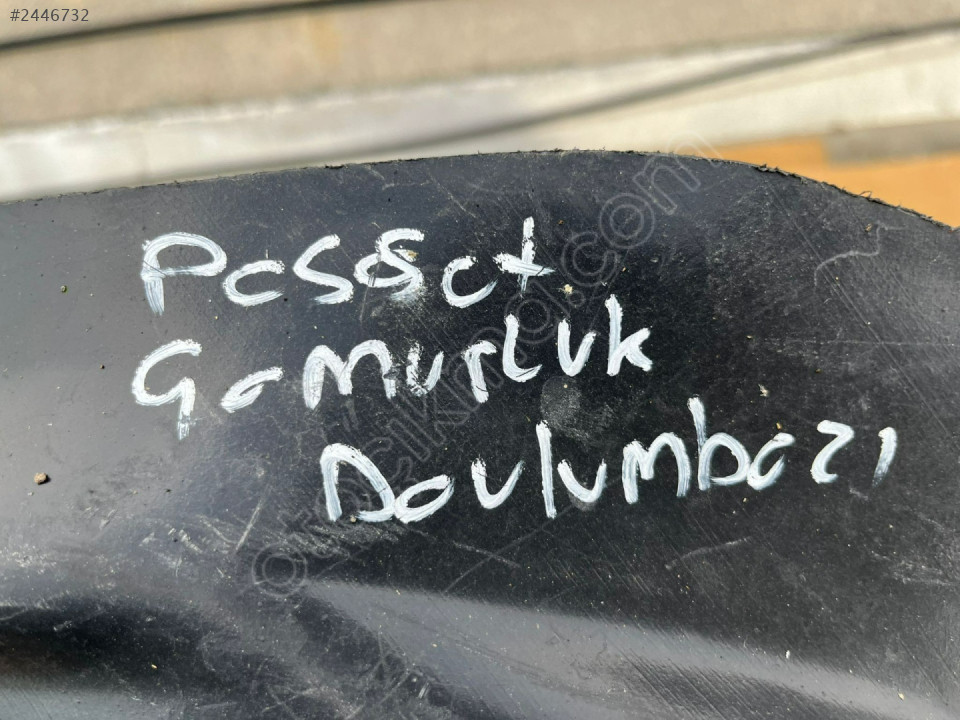 #2446732
Passat
Gamurluk
Davlumbazı
otocikma.com